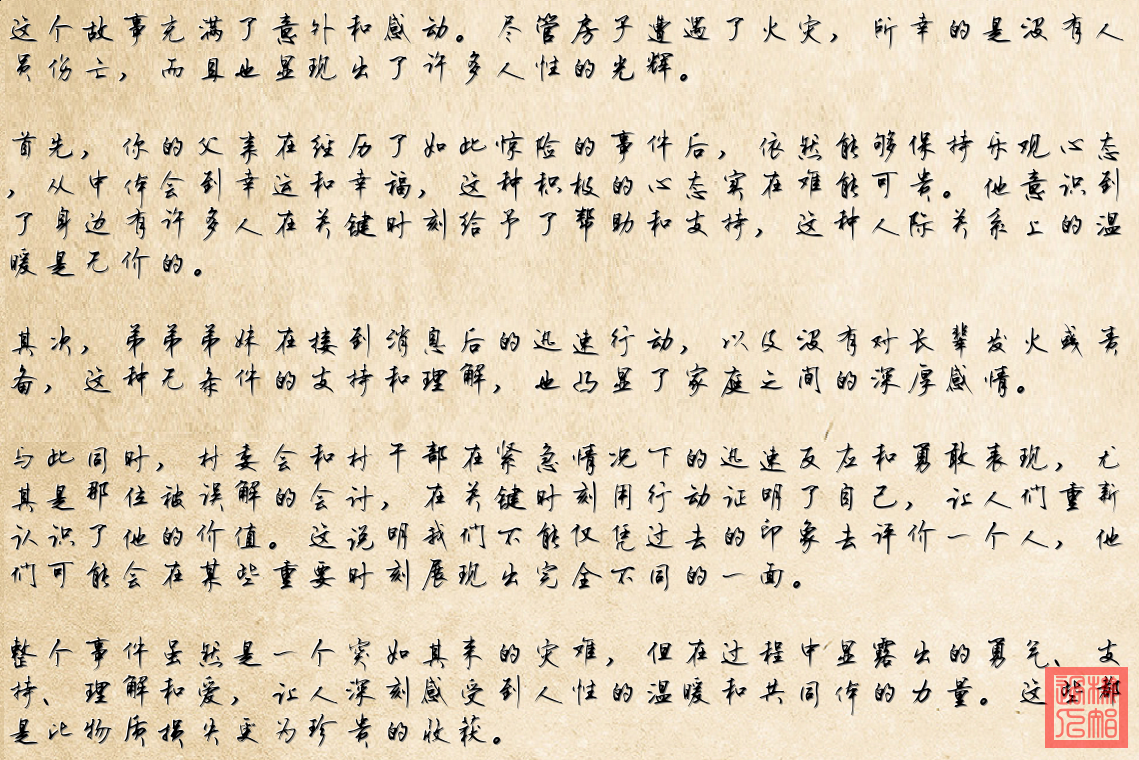 这个故事充满了意外和感动。尽管房子遭遇了火灾，所幸的是没有人
员伤亡，而且也显现出了许多人性的光辉。
首先，你的父亲在经历了如此惊险的事件后，依然能够保持乐观心态
，从中体会到幸运和幸福，这种积极的心态实在难能可贵。他意识到
了身边有许多人在关键时刻给予了帮助和支持，这种人际关系上的温
暖是无价的。
其次，弟弟弟妹在接到消息后的迅速行动，以及没有对长辈发火或责
备，这种无条件的支持和理解，也凸显了家庭之间的深厚感情。
与此同时，村委会和村干部在紧急情况下的迅速反应和勇敢表现，尤
其是那位被误解的会计，在关键时刻用行动证明了自己，让人们重新
认识了他的价值。这说明我们不能仅凭过去的印象去评价一个人，他
们可能会在某些重要时刻展现出完全不同的一面。
整个事件虽然是一个突如其来的灾难，但在过程中显露出的勇气、支
持、理解和爱，让人深刻感受到人性的温暖和共同体的力量。这些都
是比物质损失更为珍贵的收获。